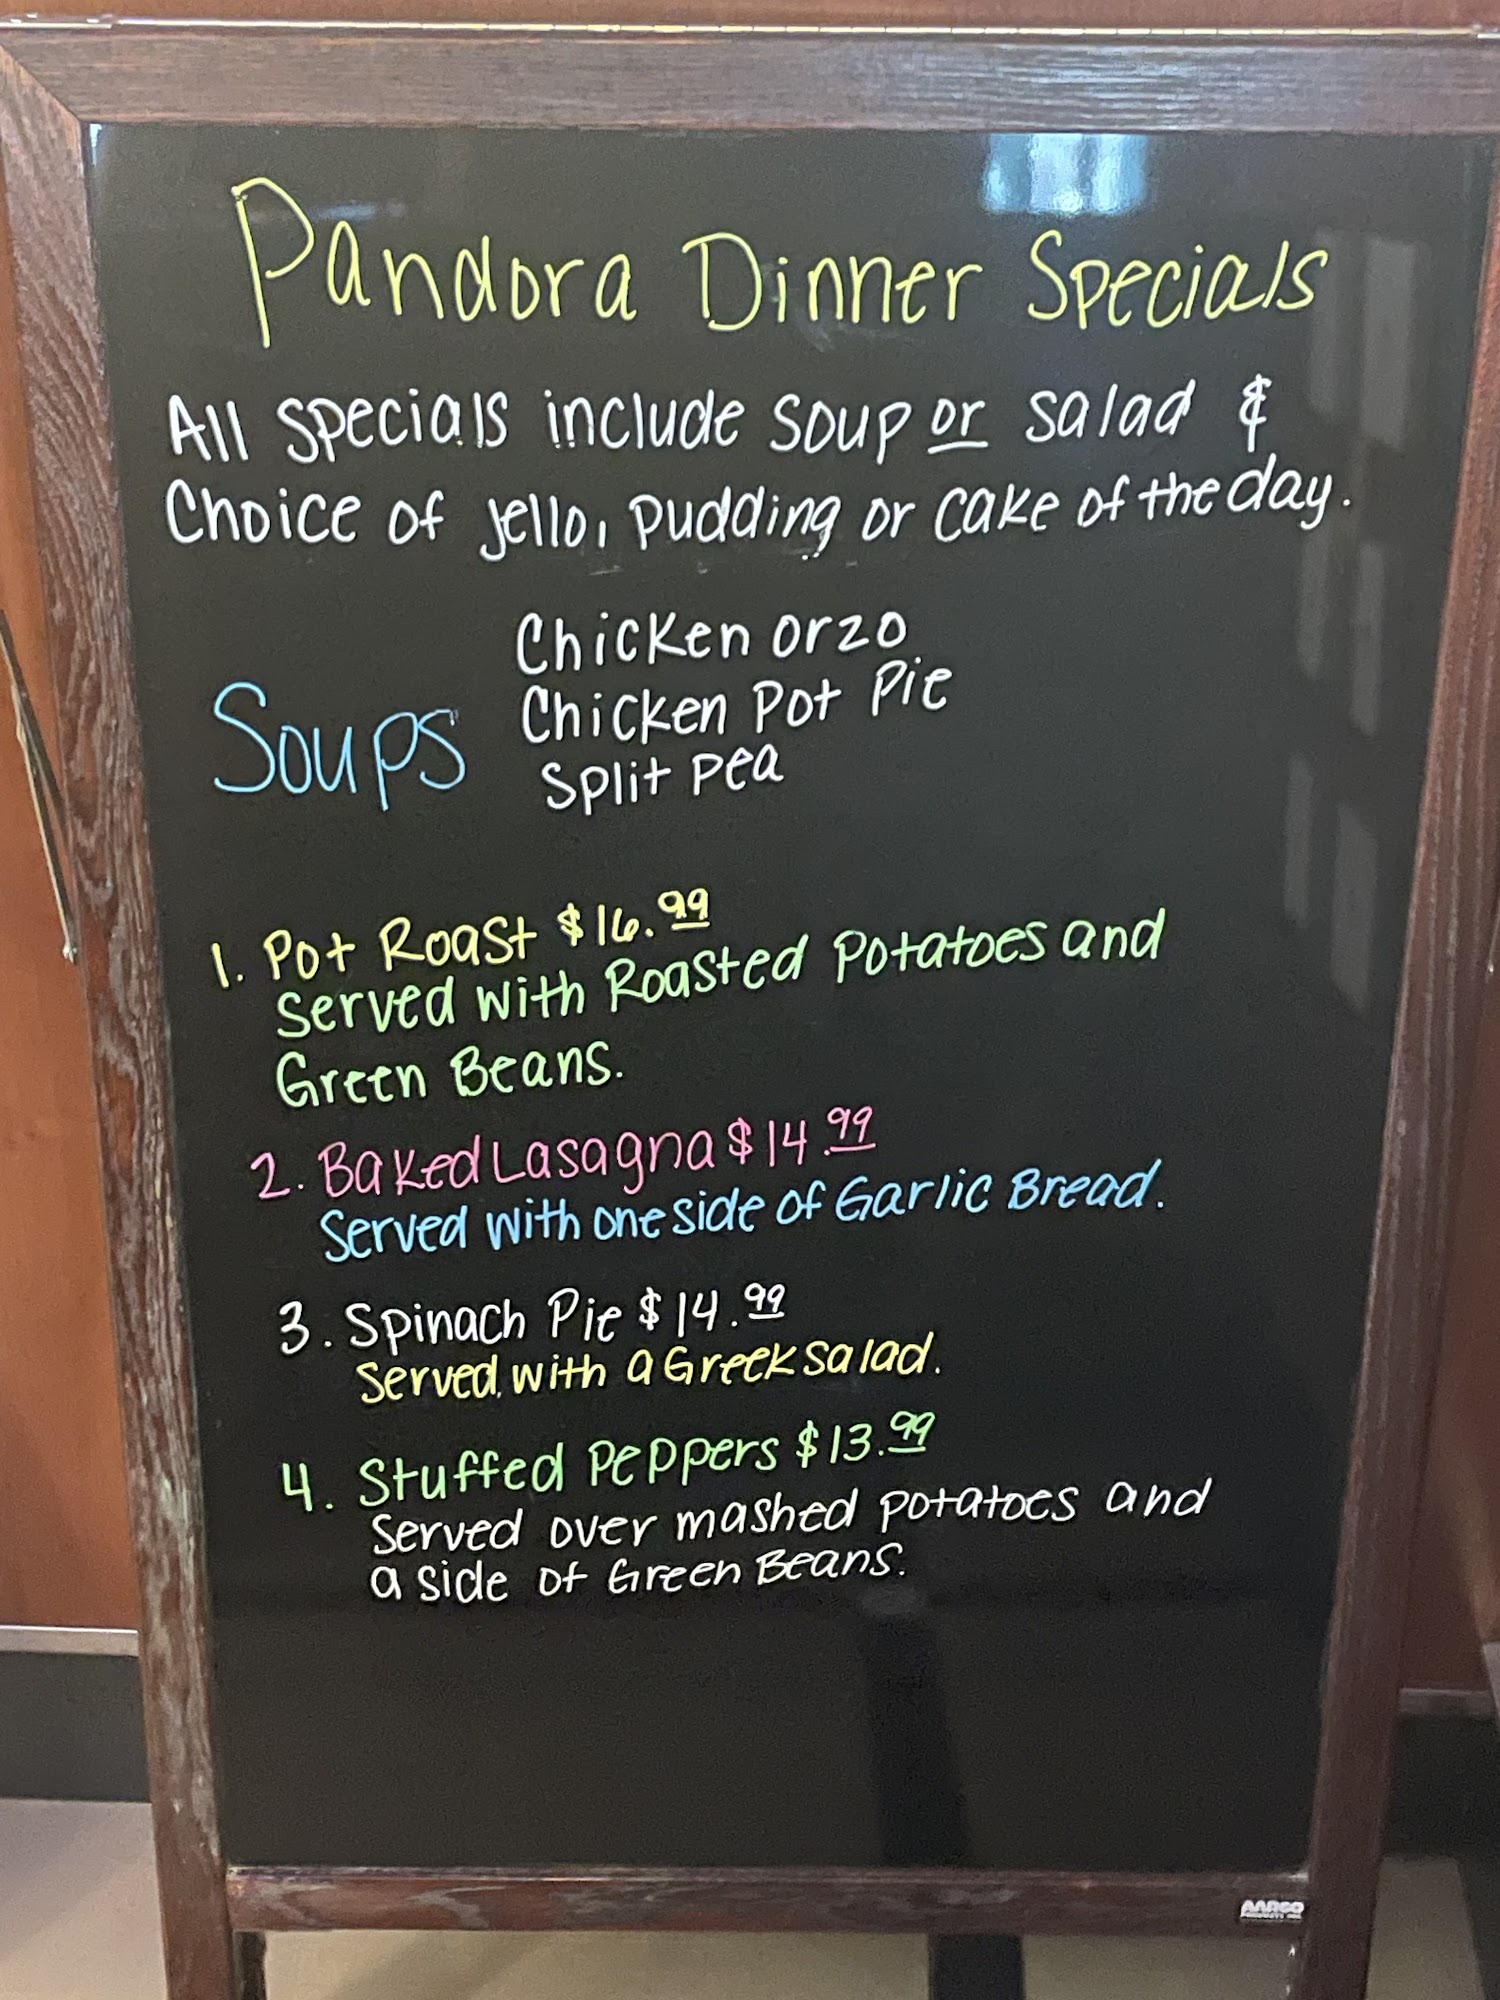 Pandora Dinner Specials
All specials include soup or salad &
Choice of jello, pudding or cake of the day.
Soups
Chicken orzo
Chicken Pot Pie
Split pea
1. Pot Roast $16.99
Served with Roasted Potatoes and
Green Beans.
2. Baked Lasagna $14.99
Served with one side of Garlic Bread.
3. Spinach Pie $14.99
Served with a Greek salad.
4. Stuffed Peppers $13.99
Served over mashed potatoes and
a side of Green Beans.
AARCO